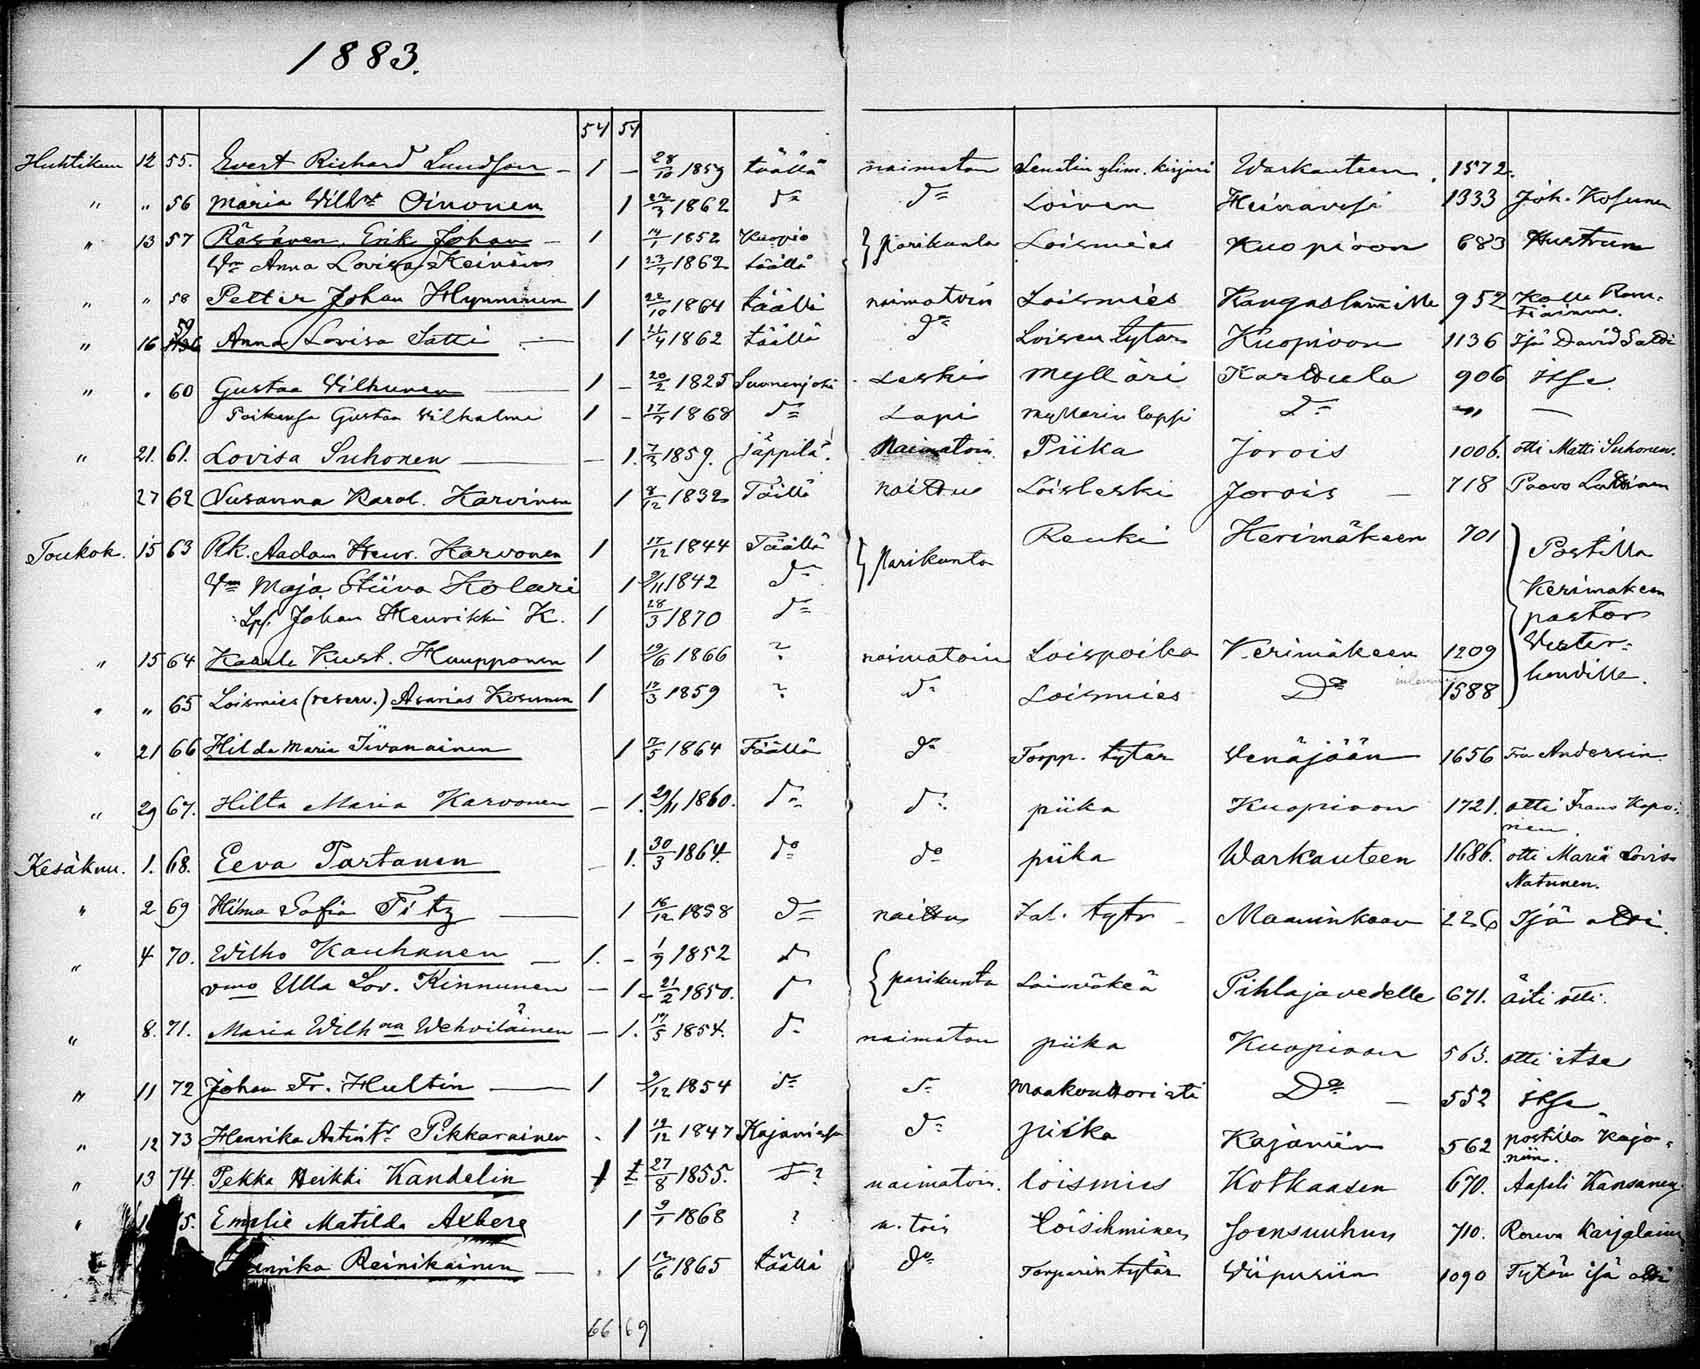 1883.
54 54
Huhtikuu 12 55. Evert Richard Lundson – 1 – 28/10 1859 täällä naimaton Senatin ylim. kirjuri Warkauteen 1572.
" " 56 Maria Wilh:a Oinonen 1 1862 d:o d:o Loinen Heinävesi 1333 Joh. Kosunen
" 13 57 Räsänen, Erik Johan – 1 1852 Kuopio } parikunta Loismies Kuopioon 683 Hustrun
V:mo Anna Lovisa Keinän 1 1862 täällä
" " 58 Petter Johan Hynninen 1 22/10 1864 täällä naimatoin Loismies Kangaslammille 952 Kalle
" 16 59 Anna Lovisa Satti – 1 1862 täällä d:o Loisen tytär Kuopioon 1136 Isä David Satti
" " 60 Gustaa Vilhunen – 1 – 20/2 1825 Suonenjoki Leski Mylläri Karttula 906 itse
Poikansa Gustaa Vilhalmi 1 – 1868 d:o Lapsi Myllärin lapsi d:o " –
" 21. 61. Lovisa Suhonen – – 1. 1859. Jäppilä. Naimatoin Piika Jorois 1006. otti Matti Suhonen.
27 62 Susanna Karol. Karvinen 1 9/12 1832 Täällä naittu Loisleski Jorois – 718 Paavo
Toukok. 15 63 Rk. Aadam Henr. Karvonen 1 17/12 1844 Täällä } Parikunta Renki Kerimäkeen 701 } Postilla
V:mo Maja Stiiva Kolari 1 9/11 1842 d:o Kerimäkeen
Lps. Johan Henrikki K. 1 28/3 1870 d:o pastor
" 15 64 Kaarle Kust. Huupponen 1 19/6 1866 ? naimatoin Loispoika Kerimäkeen 1209 Wester-
" " 65 Loismies (reserv.) Asarias Kosunen 1 1859 ? d:o Loismies D:o 1588 lundille.
" 21 66 Hilda Maria Iivanainen 1 1864 Täällä d:o Torpp. tytär Venäjään 1656 Fru Andersin
" 29 67. Hilta Maria Karvonen – 1. 29/11 1860. d:o d:o piika Kuopioon 1721. otti Frans Kopo-
nen
Kesäkuu. 1. 68. Eeva Partanen – 1. 30/3 1864. d:o d:o piika Warkauteen 1686. otti Maria Lovisa
Natunen.
" 2 69 Hilma Sofia Titz – 1 16/12 1858 d:o naittu Tal. tytr – Maaninkaan 226 Isä otti.
" 4 70. Wilho Kauhanen – 1. – 1/9 1852 d:o { parikunta Loisväkeä Pihlajavedelle 671. äiti otti.
vmo Ulla Lov. Kinnunen – 1 – 21/2 1850. d:o
" 8. 71. Maria Wilh:na Wehviläinen – 1. 1854. d:o naimaton piika Kuopioon 563. otti itse
" 11 72 Johan Fr. Hultin – 1 9/12 1854 d:o d:o Maakonttoristi D:o – 552 itse
" 12 73 Henrika Antint:r Pikkarainen . 1 12/12 1847 Kajanissa d:o piika Kajaniin 562 postilla Kaja-
niin.
" 13 74. Pekka Heikki Kandelin 1 1 27/8 1855. d:o? naimatoin. loismies Kotkaasen 670. Aapeli Kansanen
" 5. Emelie Matilda Axberg 1 1868 ? n. toin Loisihminen Joensuuhun 710. Rouva Karjalainen
Henrika Reinikainen – . 1 12/6 1865 täällä d:o Torparin tytär Wiipuriin 1090 Tytön isä otti
66 69